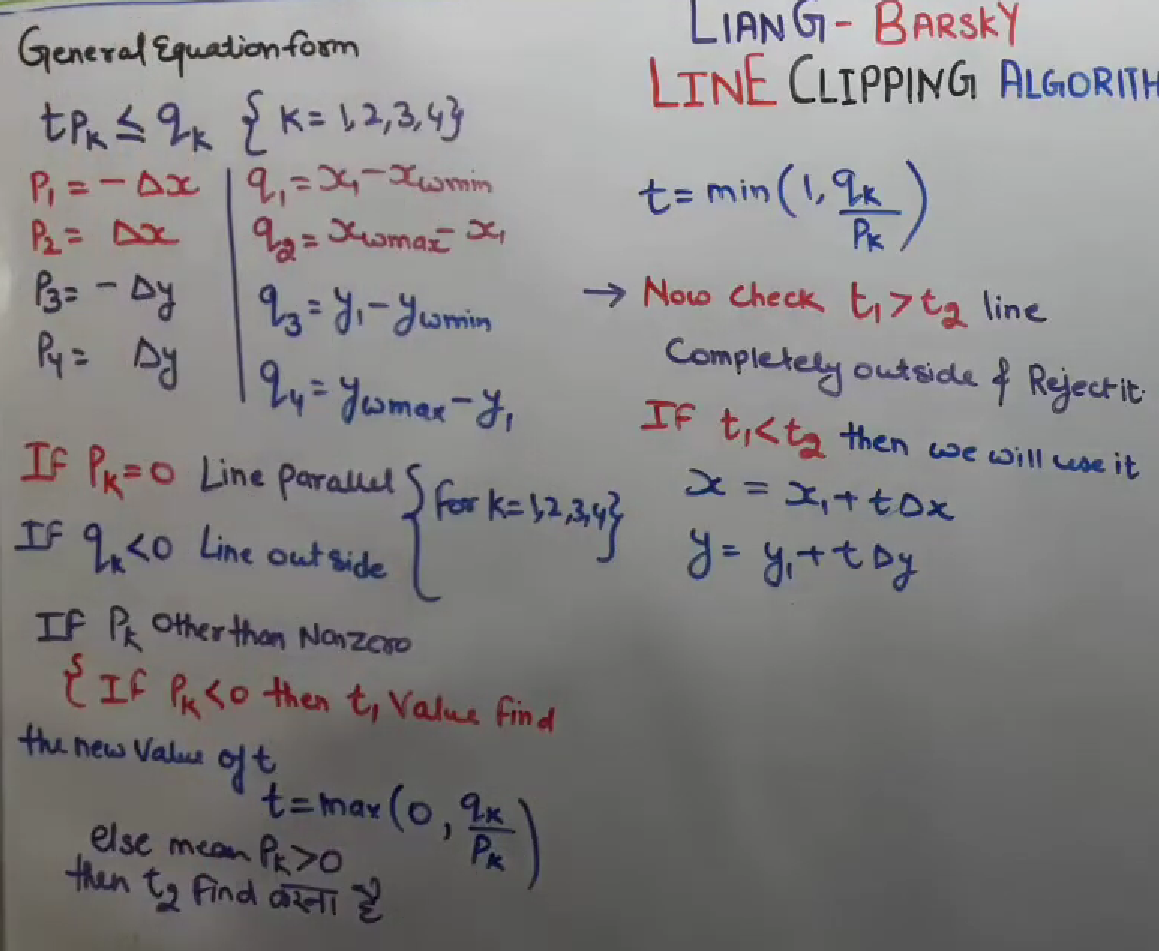 LIANG-BARSKY
LINE CLIPPING ALGORITH
General Equation form
tPk ≤ qk { K=1,2,3,4}
P1 = -Δx | q1 = x1 - xwmin
P2 = Δx | q2 = xwmax - x1
P3 = -Δy | q3 = y1 - ywmin
P4 = Δy | q4 = ywmax - y1
If Pk=0 Line parallel { for k=1,2,3,4}
If qk<0 Line outside
If Pk Other than Nonzero
{If Pk<0 then t1 Value find
the new value of t
t=max(0, qk/Pk)
else mean Pk>0
then t2 find करना है
t=min(1, qk/Pk)
→ Now check t1>t2 line
Completely outside & Reject it.
If t1<t2 then we will use it
x = x1+tΔx
y = y1+tΔy